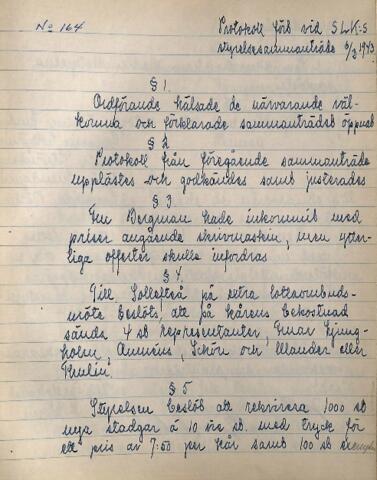 No 164
Protokoll förb vid SLK:S
styrelsesammanträde 6/2 1943
§ 1.
Ordförande hälsade de närvarande väl-
komna och förklarade sammanträdet öppnab
§ 2
Protokoll från föregående sammanträde
upplästes och godkändes samb justerades
§ 3
Fru Bergman hade inkommit med
priser angående skrivmaskin, men ytter-
liga offerter skulle infordras
§ 4.
Till Sollefteå på extra lottaombuds-
möte beslöts att på kårens bekostnad
sända 4 sb representanter, Fruar Ljung-
holm, Schön och Illander eller
Thulin.
§ 5
Styrelsen beslöb att rekvirera 1000 sb
nya stadgar á 10 öre sb. med tryck för
ett pris av 7:50 per kår samb 100 sb